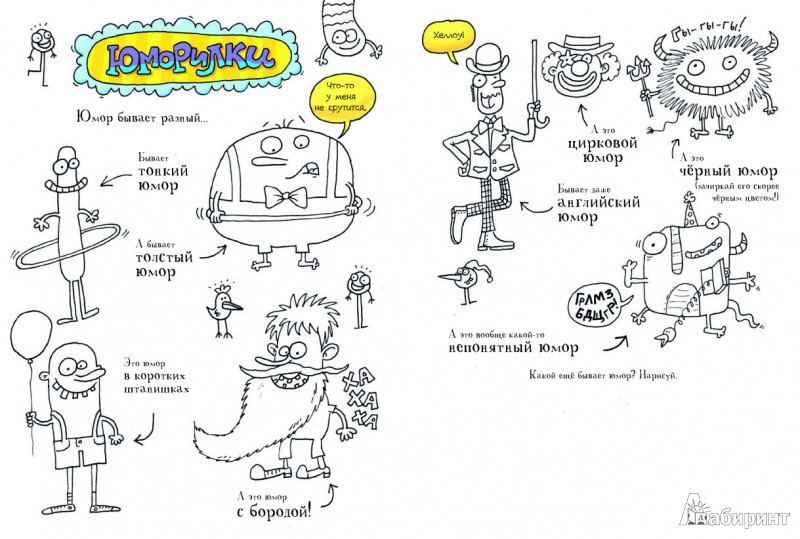 Юморилки
Юмор бывает разный...
Что-то
у меня
не крутится.
Бывает
тонкий
юмор
А бывает
толстый
юмор
Это юмор
в коротких
штанишках
ХА
ХА
ХА
А это юмор
с бородой!
Хеллоу!
Гы-гы-гы!
А это
цирковой
юмор
А это
чёрный юмор
(зачиркай его скорее
чёрным цветом!)
Бывает даже
английский
юмор
ГРЛМЗ
БДЩГР!
А это вообще какой-то
непонятный юмор
Какой ещё бывает юмор? Нарисуй.
Лабиринт